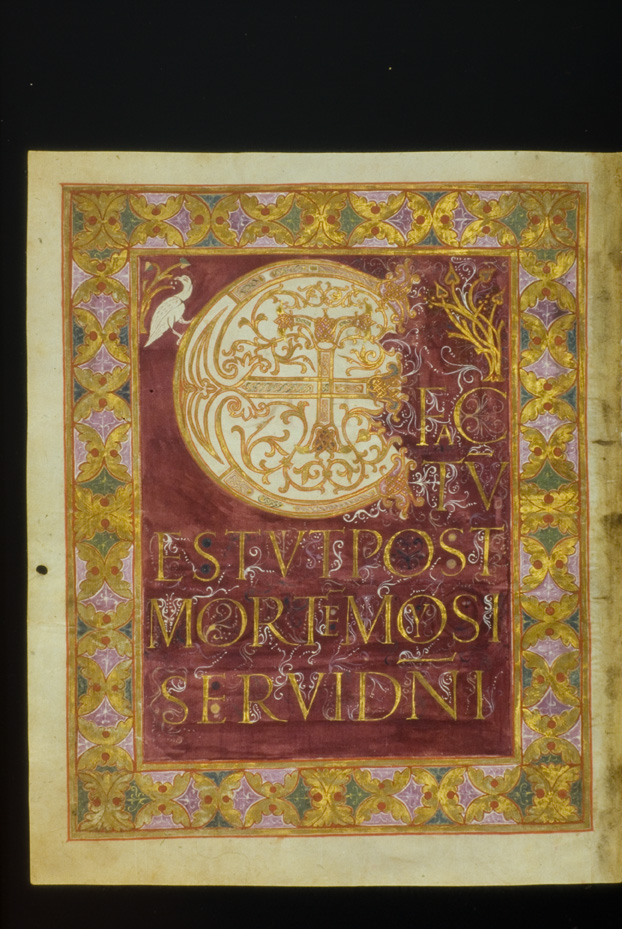 ET
FAC
TV̄
ESTVTPOST
MORTEMOSI
SERVIDN̄I